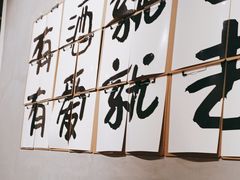 有酒就
有爱就